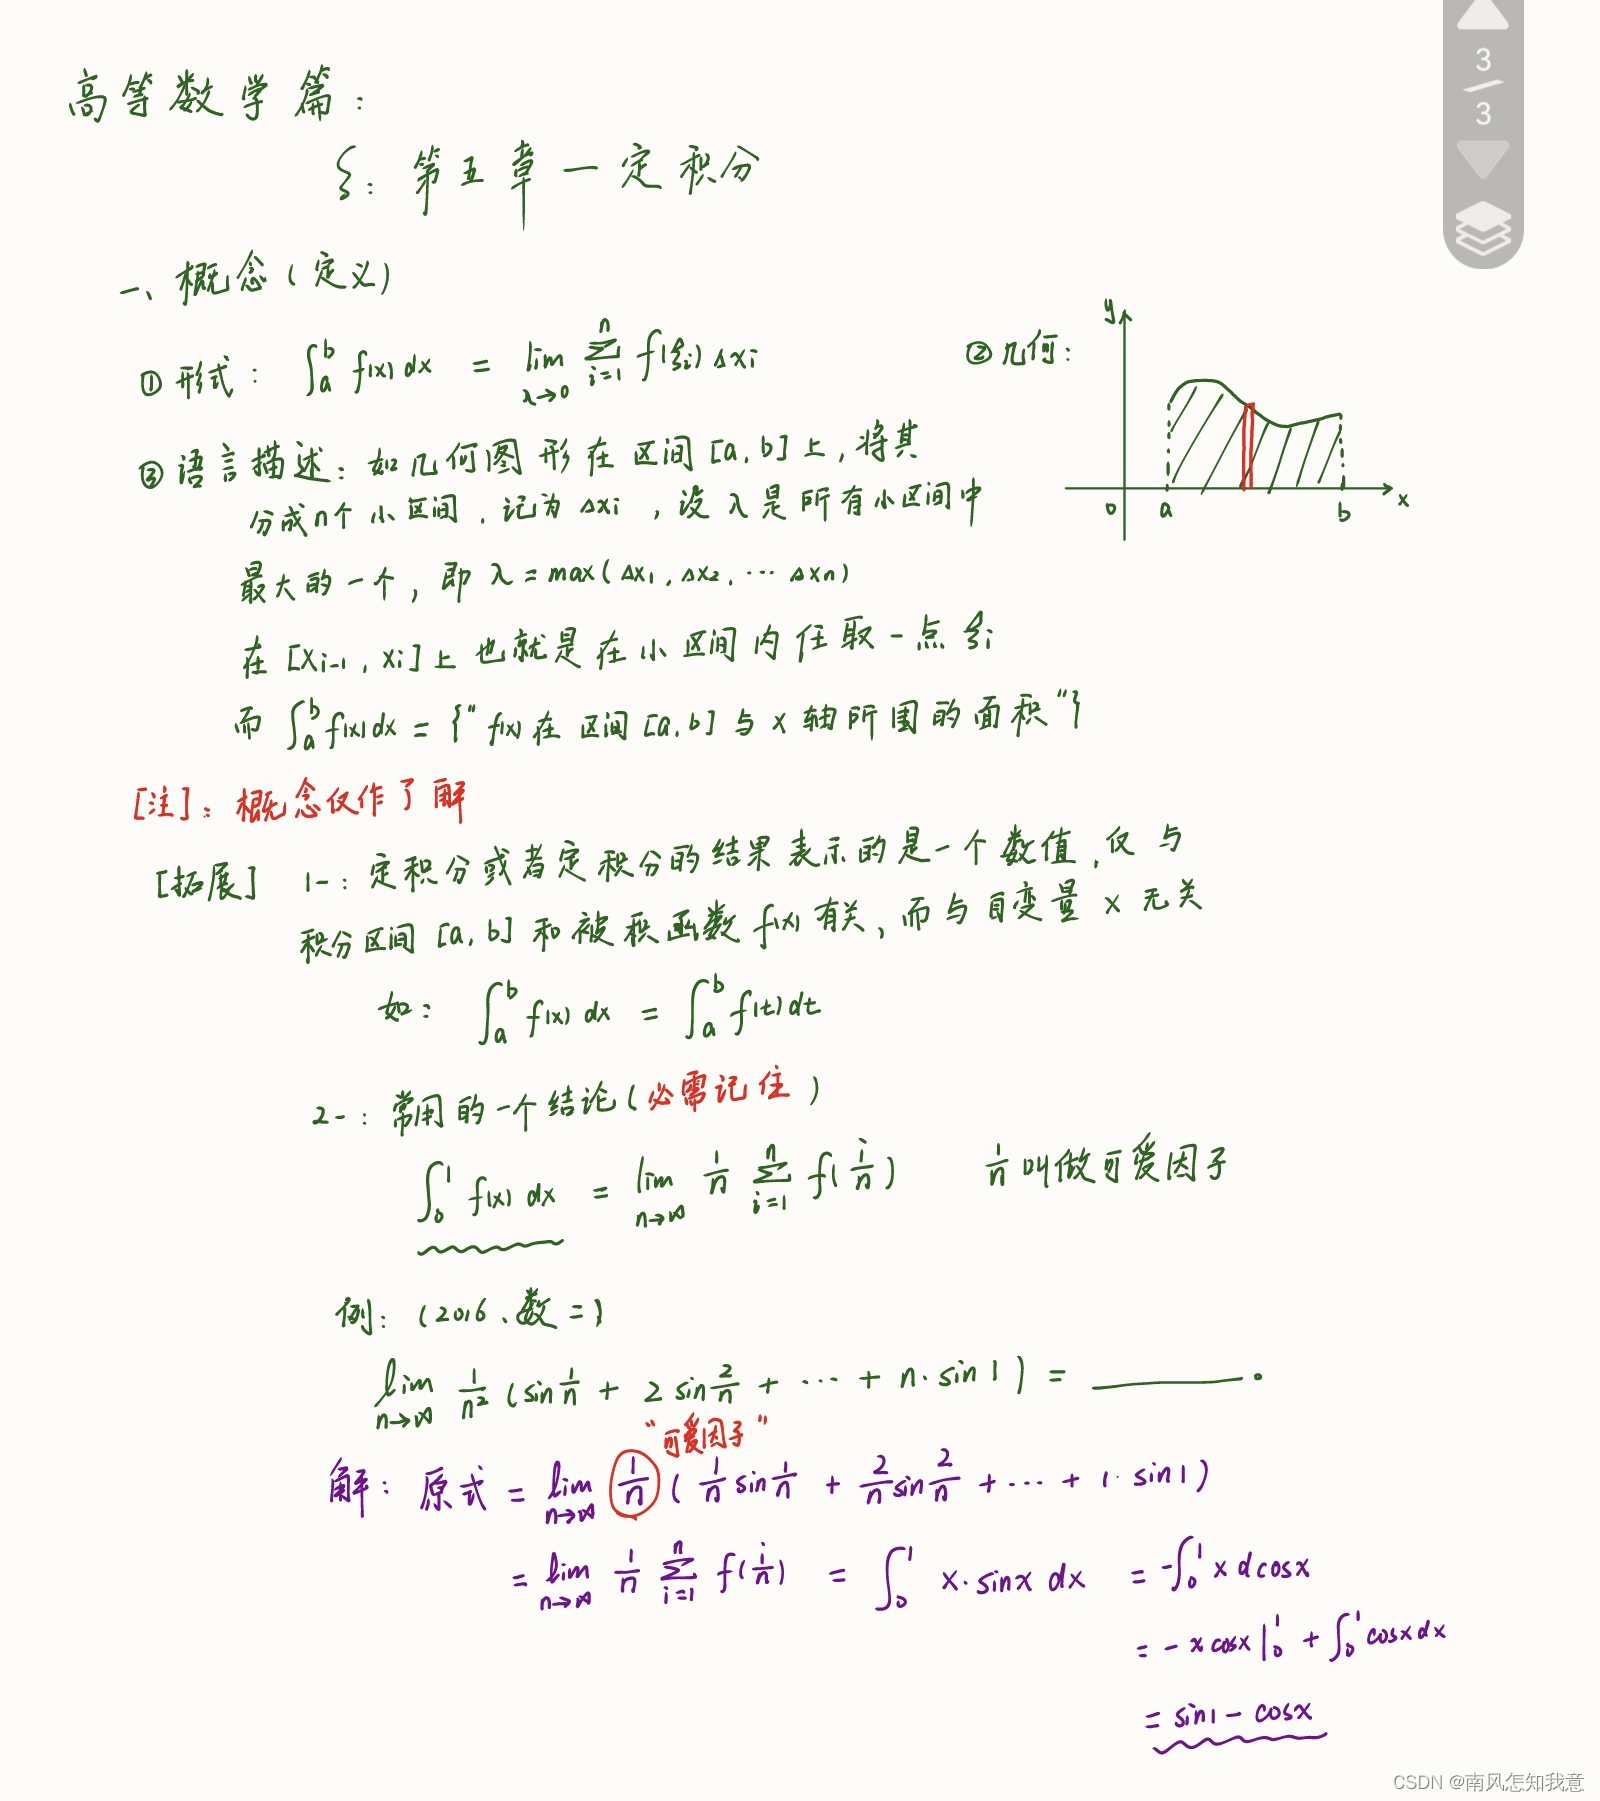 3
3
高等数学篇：
ξ：第五章一定积分
一、概念（定义）
① 形式： ∫_a^b f(x) dx = lim_{λ→0} Σ_{i=1}^n f(ξi) Δxi
② 几何：
y
o a b x
③ 语言描述：如几何图形在区间[a,b]上，将其
分成n个小区间，记为Δxi，设λ是所有小区间中
最大的一个，即 λ=max(Δx1,Δx2,…Δxn)
在[Xi-1, Xi]上也就是在小区间内任取一点ξi
而 ∫_a^b f(x)dx = {“f(x)在区间[a,b]与x轴所围的面积”}
[注]：概念仅作了解
[拓展] 1-：定积分或者定积分的结果表示的是一个数值，仅与
积分区间[a,b]和被积函数f(x)有关，而与自变量x无关
如： ∫_a^b f(x) dx = ∫_a^b f(t)dt
2-：常用的一个结论（必需记住）
∫_0^1 f(x) dx = lim_{n→∞} 1/n Σ_{i=1}^n f(i/n) 1/n 叫做可爱因子
例：（2016、数二）
lim_{n→∞} 1/n² (sin 1/n + 2 sin 2/n + … + n·sin1) = ______。
“可爱因子”
解：原式 = lim_{n→∞} 1/n ( 1/n sin 1/n + 2/n sin 2/n + … + 1·sin1)
= lim_{n→∞} 1/n Σ_{i=1}^n f(i/n) = ∫_0^1 x·sinx dx = -∫_0^1 x dcosx
= -x cosx |_0^1 + ∫_0^1 cosx dx
= sin1 - cosx
CSDN @南风怎知我意